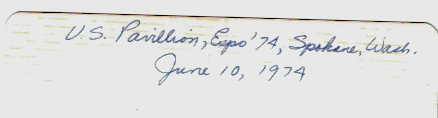 U.S. Pavillion, Expo '74, Spokane, Wash.
June 10, 1974